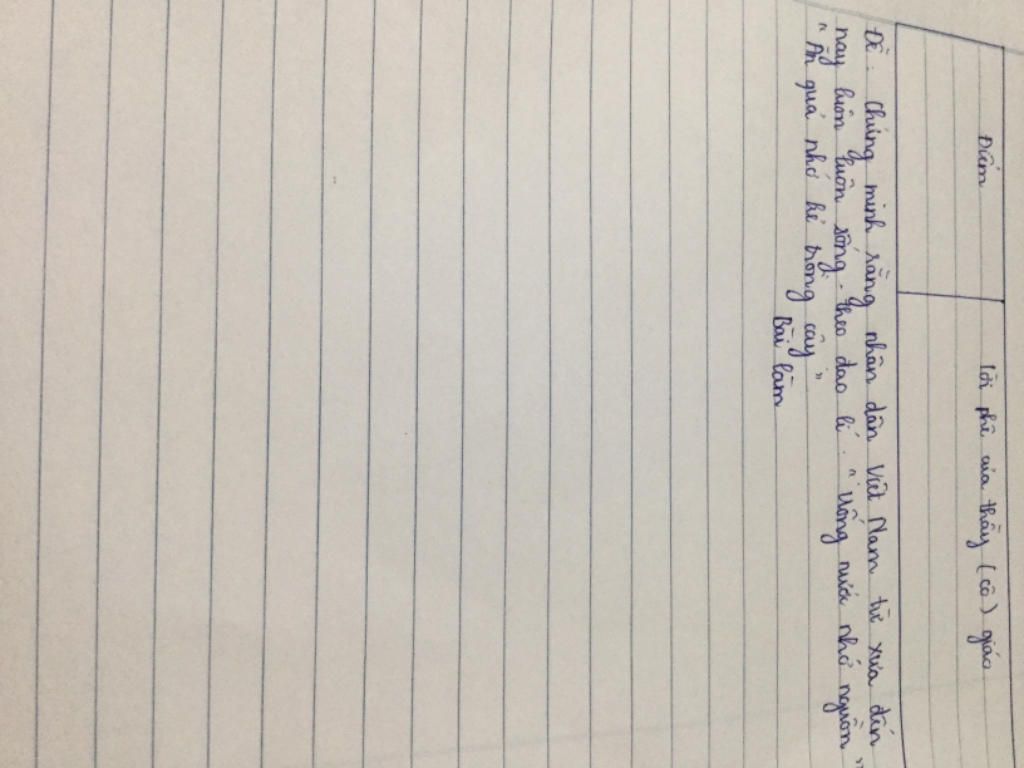 Điểm
Lời phê của thầy (cô) giáo
Đề: Chứng minh rằng nhân dân Việt Nam từ xưa đến
nay luôn luôn sống theo đạo lí. "Uống nước nhớ nguồn"
"Ăn quả nhớ kẻ trồng cây"
Bài làm